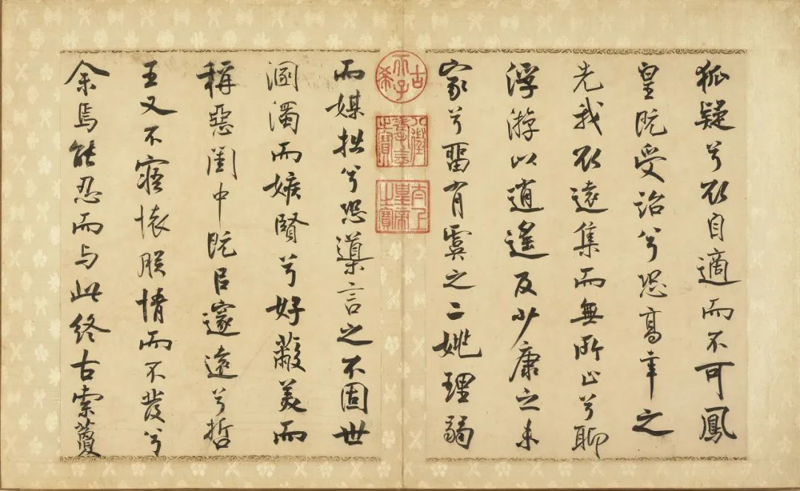 狐疑兮欲自適而不可鳳
皇既受詒兮恐高辛之
先我欲遠集而無所止兮聊
浮游以逍遙及少康之未
家兮留有虞之二姚理弱
古希天子
八徵耄念之寶
太上皇帝之寶
而媒拙兮恐導言之不固世
溷濁而嫉賢兮好蔽美而
稱惡閨中既㠯邃遠兮哲
王又不寤懷朕情而不發兮
余焉能忍而与此終古索藑